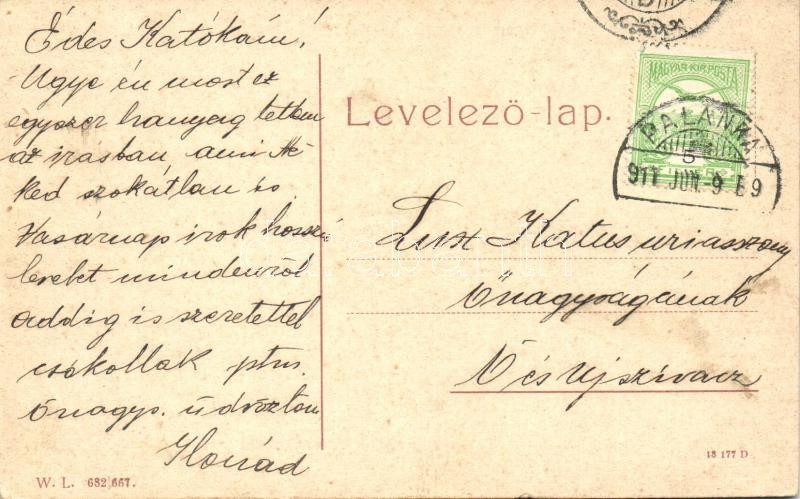 Édes Katókám!
Ugye én most ez
egyszer hanyag lettem
az irásban, ami Né-
ked szokátlan és
Vasárnap irok hosszú
levelet mindenröl
addig is szeretettel
csókollak
Önagys. üdvözlom
Levelezö-lap.
MAGYAR KIR. POSTA
PALÁNKA
5
911 JUN. 9
Lux Katus uriasszony
Önagyságának
Ó és Ujszivacz
W. L. 682/667.
13 177 D